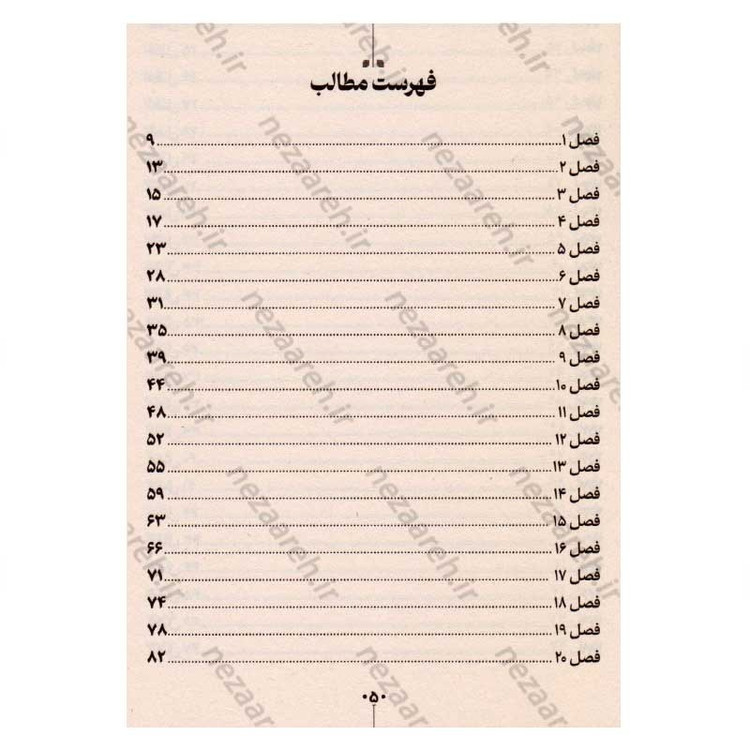 فهرست مطالب
فصل ۱ ........ ۹
فصل ۲ ........ ۱۳
فصل ۳ ........ ۱۵
فصل ۴ ........ ۱۷
فصل ۵ ........ ۲۳
فصل ۶ ........ ۲۸
فصل ۷ ........ ۳۱
فصل ۸ ........ ۳۵
فصل ۹ ........ ۳۹
فصل ۱۰ ........ ۴۴
فصل ۱۱ ........ ۴۸
فصل ۱۲ ........ ۵۲
فصل ۱۳ ........ ۵۵
فصل ۱۴ ........ ۵۹
فصل ۱۵ ........ ۶۳
فصل ۱۶ ........ ۶۶
فصل ۱۷ ........ ۷۱
فصل ۱۸ ........ ۷۴
فصل ۱۹ ........ ۷۸
فصل ۲۰ ........ ۸۲
۵
nezaareh.ir